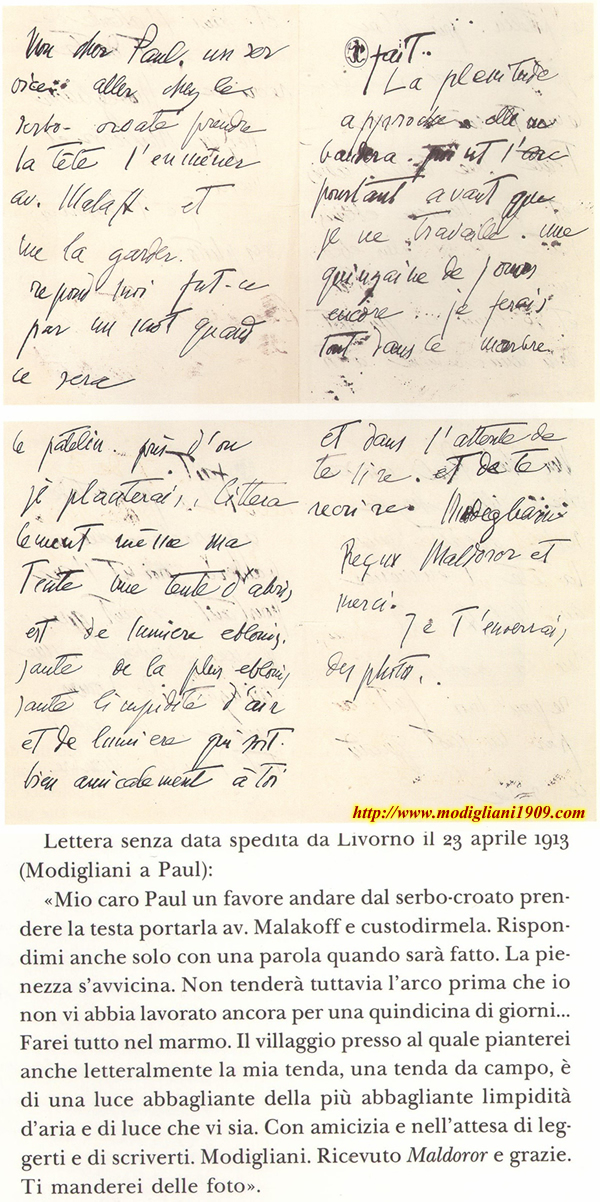 Mon cher Paul. un ser
vice: aller chez le
serbo-croate prendre
la tête l'enmener
av. Malaff. et
me la garder.
repond moi fut-ce
par un mot quand
ce sera
fait..
La plenitude
approche. elle ne
bandera. l'arc
pourtant avant que
je ne travaille. une
quinzaine de jours
encore ... je ferais
tout dans le marbre.
le patelin. près d'ou
je planterais, littera
lement même ma
Tente une tente d'abri,
est de lumiere eblouis,
sante de la plus eblouis
sante limpidité d'air
et de lumiere qui soit.
bien amicalement à toi
et dans l'attente de
te lire. et de te
recrire. Modigliani
Reçux Maldoror et
merci.
Je t'enverrai,
des photo..
http://www.modigliani1909.com/
Lettera senza data spedita da Livorno il 23 aprile 1913
(Modigliani a Paul):
«Mio caro Paul un favore andare dal serbo-croato pren-
dere la testa portarla av. Malakoff e custodirmela. Rispon-
dimi anche solo con una parola quando sarà fatto. La pie-
nezza s'avvicina. Non tenderà tuttavia l'arco prima che io
non vi abbia lavorato ancora per una quindicina di giorni...
Farei tutto nel marmo. Il villaggio presso al quale pianterei
anche letteralmente la mia tenda, una tenda da campo, è
di una luce abbagliante della più abbagliante limpidità
d'aria e di luce che vi sia. Con amicizia e nell'attesa di leg-
gerti e di scriverti. Modigliani. Ricevuto Maldoror e grazie.
Ti manderei delle foto».